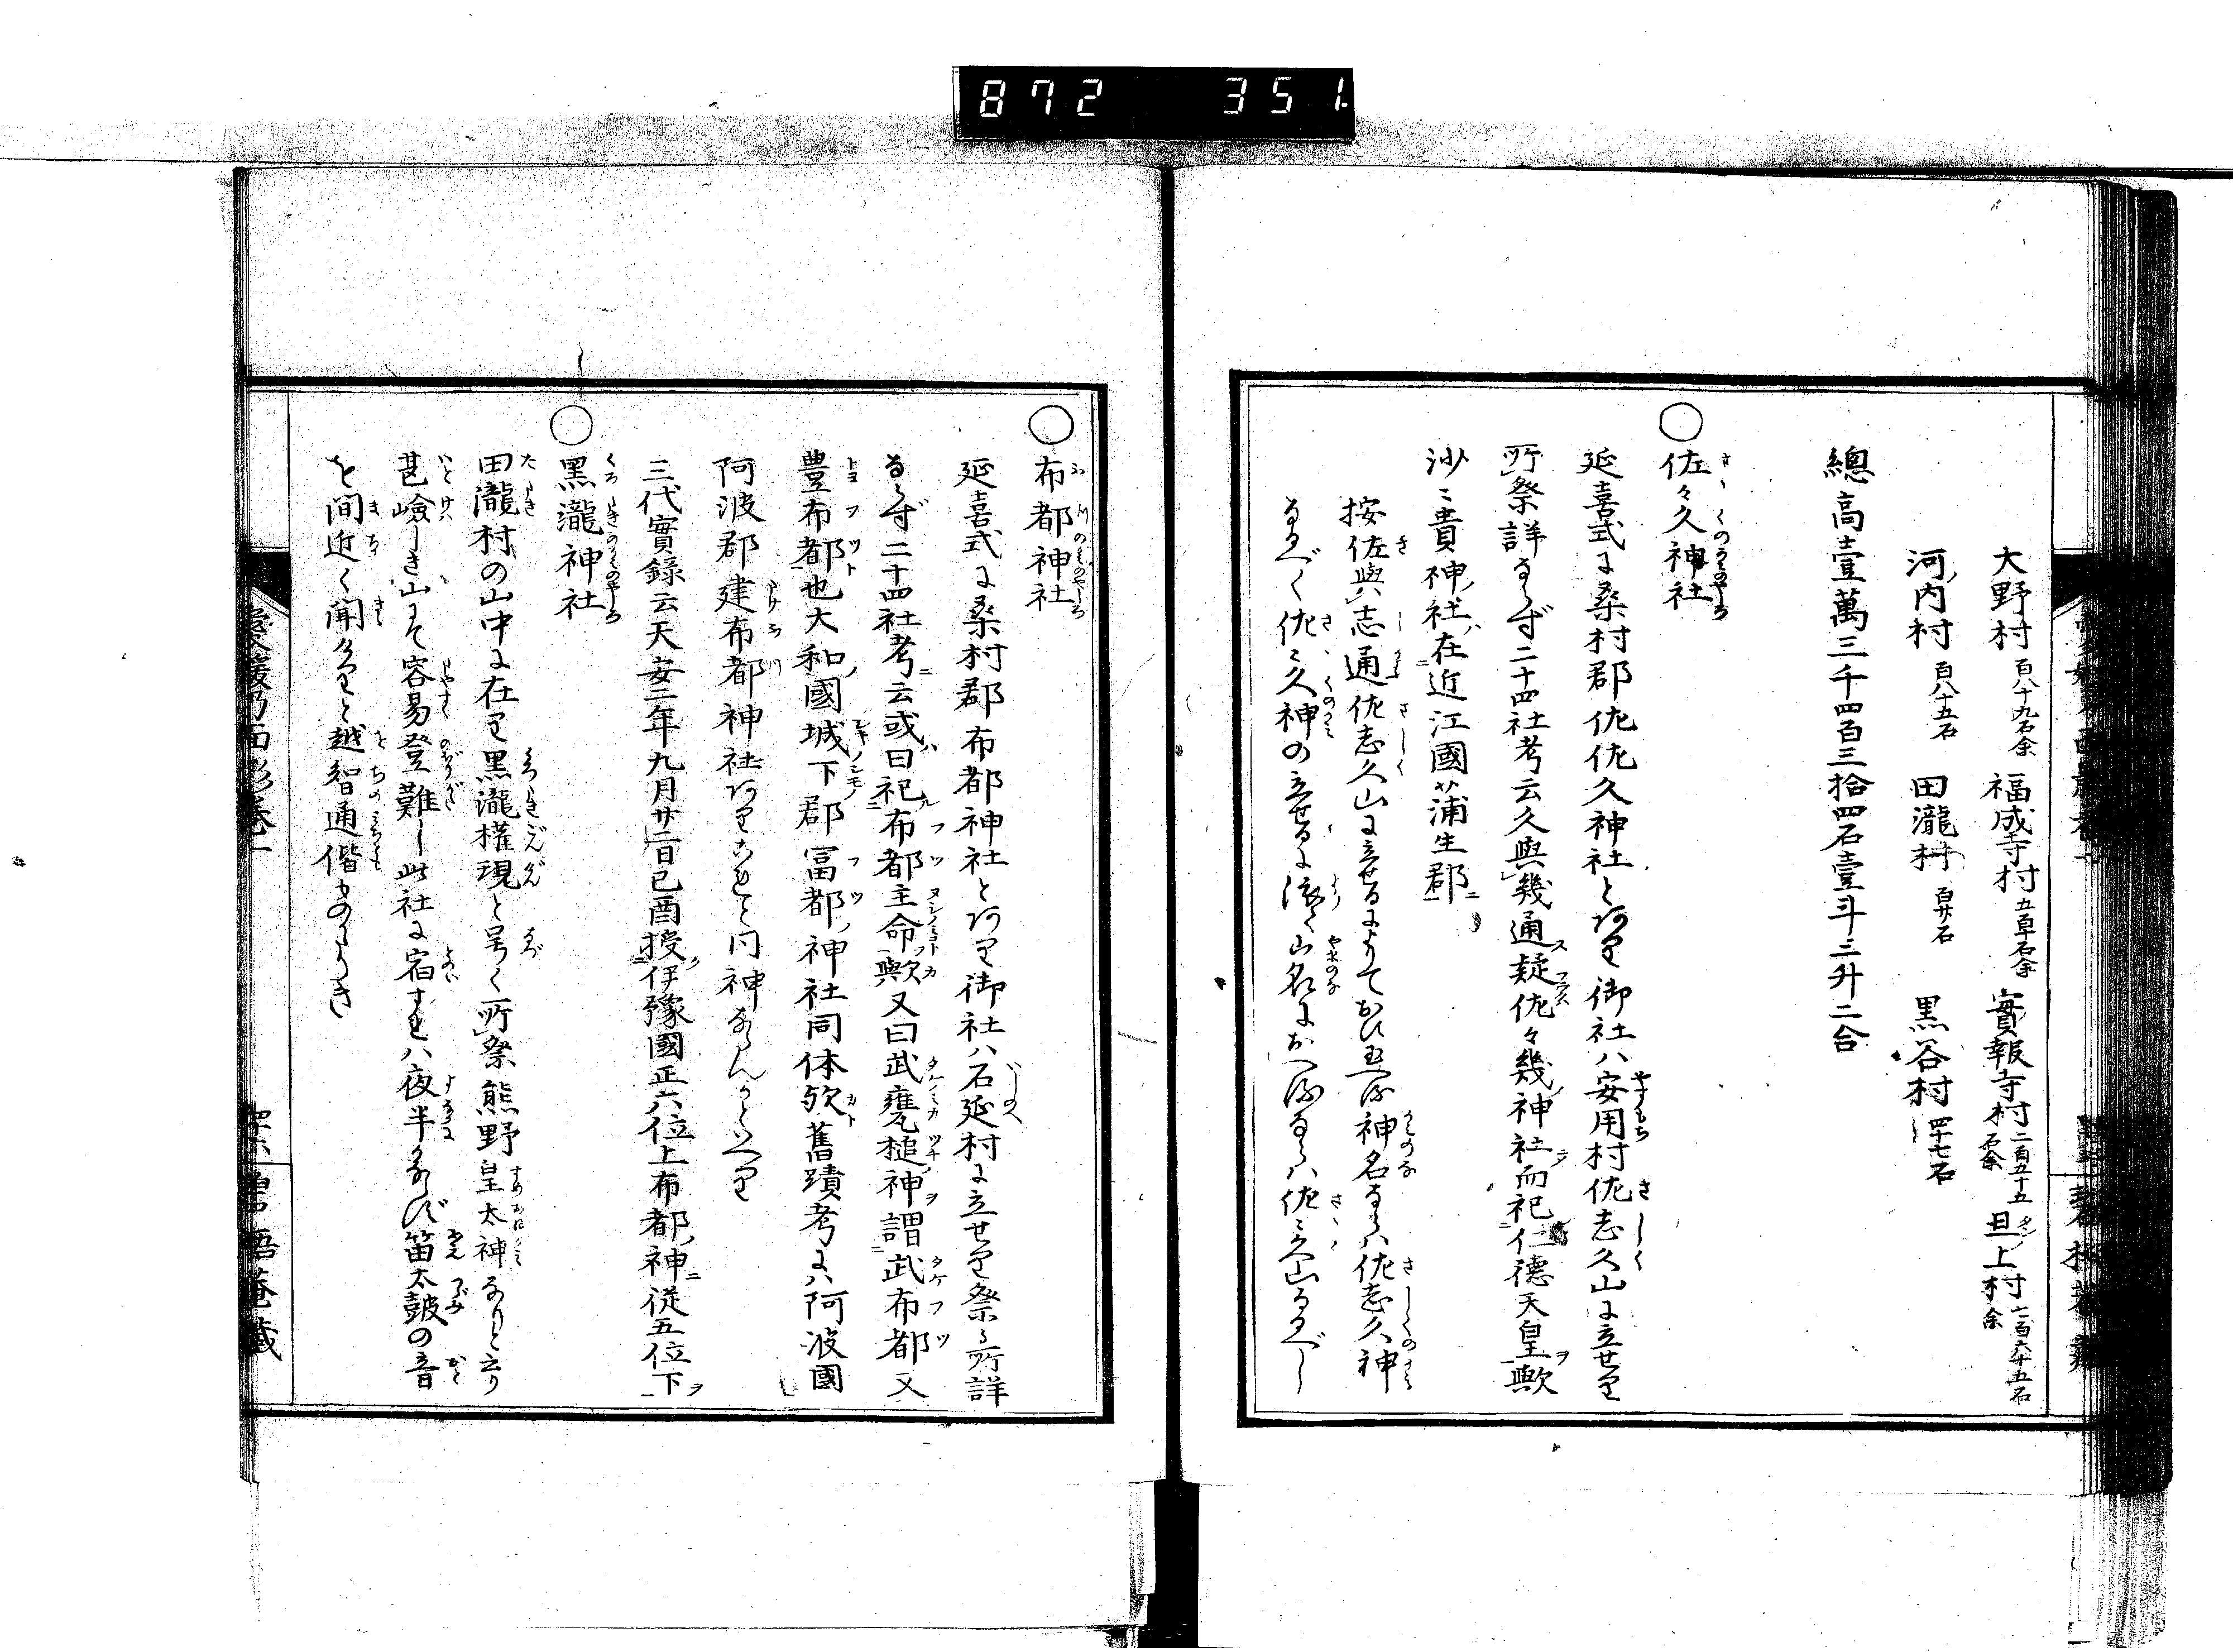 872 351
大野村 百八十九石余 福成寺村 五百石余 實報寺村 二百五十五石余 旦上村 七百六十五石余
河内村 百八十五石 田瀧村 百廿石 黒谷村 四十七石
總高壹萬三千四百三拾四石壹斗三升二合
○佐々久神社
延喜式に桑村郡佐佐久神社とあり御社ハ安用村佐志久山に立せり
所祭詳ならず二十四社考云久與幾通疑佐々幾神社而祀仁德天皇歟
沙々貴神社在近江國蒲生郡
按佐與志通佐志久山に立せるによりておひ玉へる神名ならハ佐志久神
なるべく佐々久神の立せるに依て山名におへるならハ佐々久山なるべし
○布都神社
延喜式に桑村郡布都神社とあり御社ハ石延村に立せり祭る所詳
ならず二十四社考云或曰祀布都主命歟又曰武甕槌神謂武布都又
豊布都也大和國城下郡冨都神社同体歟舊蹟考にハ阿波國
阿波郡建布都神社ありこれと同神ならんかといへり
三代實録云天安二年九月廿一日己酉授伊豫國正六位上布都神從五位下
○黒瀧神社
田瀧村の山中に在り黒瀧権現と号く所祭熊野皇太神なりと云り
甚嶮しき山にて容易登難し此社に宿すれハ夜半ならず笛太皷の音
を間近く聞けりと越智通偕ものかたりき
愛媛乃面影巻一
半窓書屋蔵